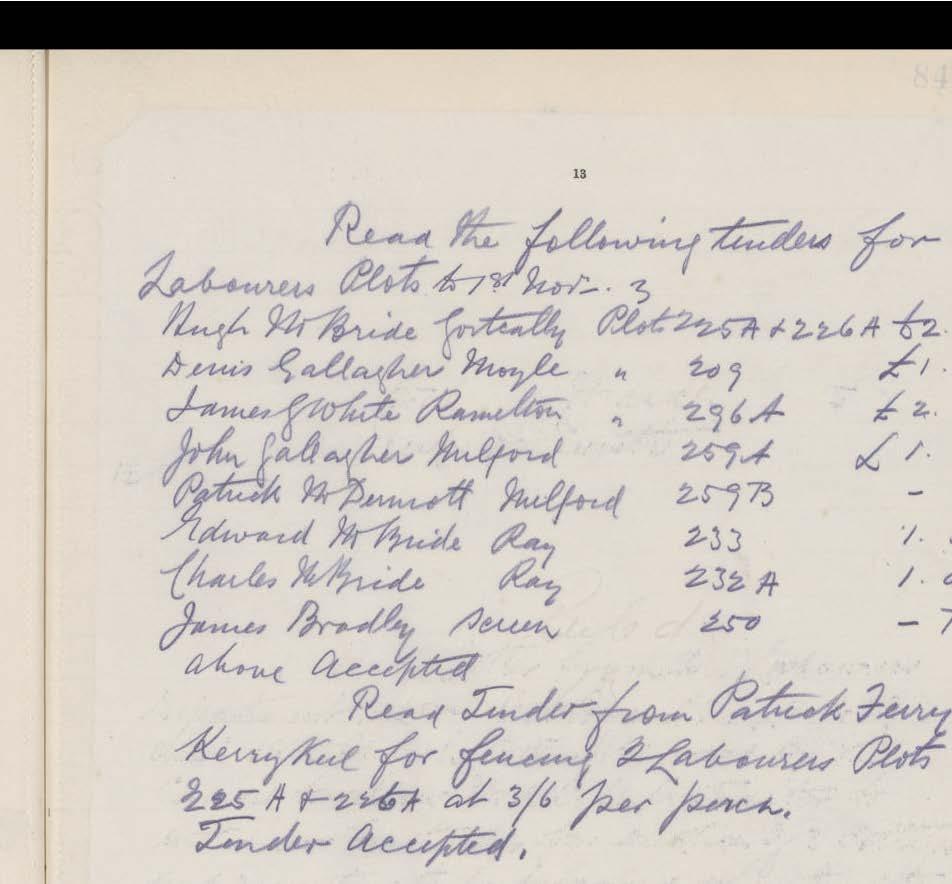 84
13
Read the following tenders for
Labourers Plots to 1st Nov. 3
Hugh McBride Gortcally Plots 225A & 226A £2
Denis Gallagher Moyle " 209 £1.
James G White Ramelton " 296A £2.
John Gallagher Milford 259A £1.
Patrick McDermott Milford 259B -
Edward McBride Ray 233 1.
Charles McBride Ray 232A 1.
James Bradley 250 -
above accepted
Read Tender from Patrick Ferry
for fencing 2 Labourers Plots
225A & 226A at 3/6 per perch.
Tender Accepted.